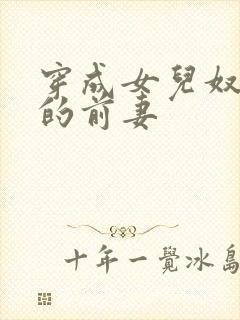 穿成女兒奴
的前妻
十年一覺冰島